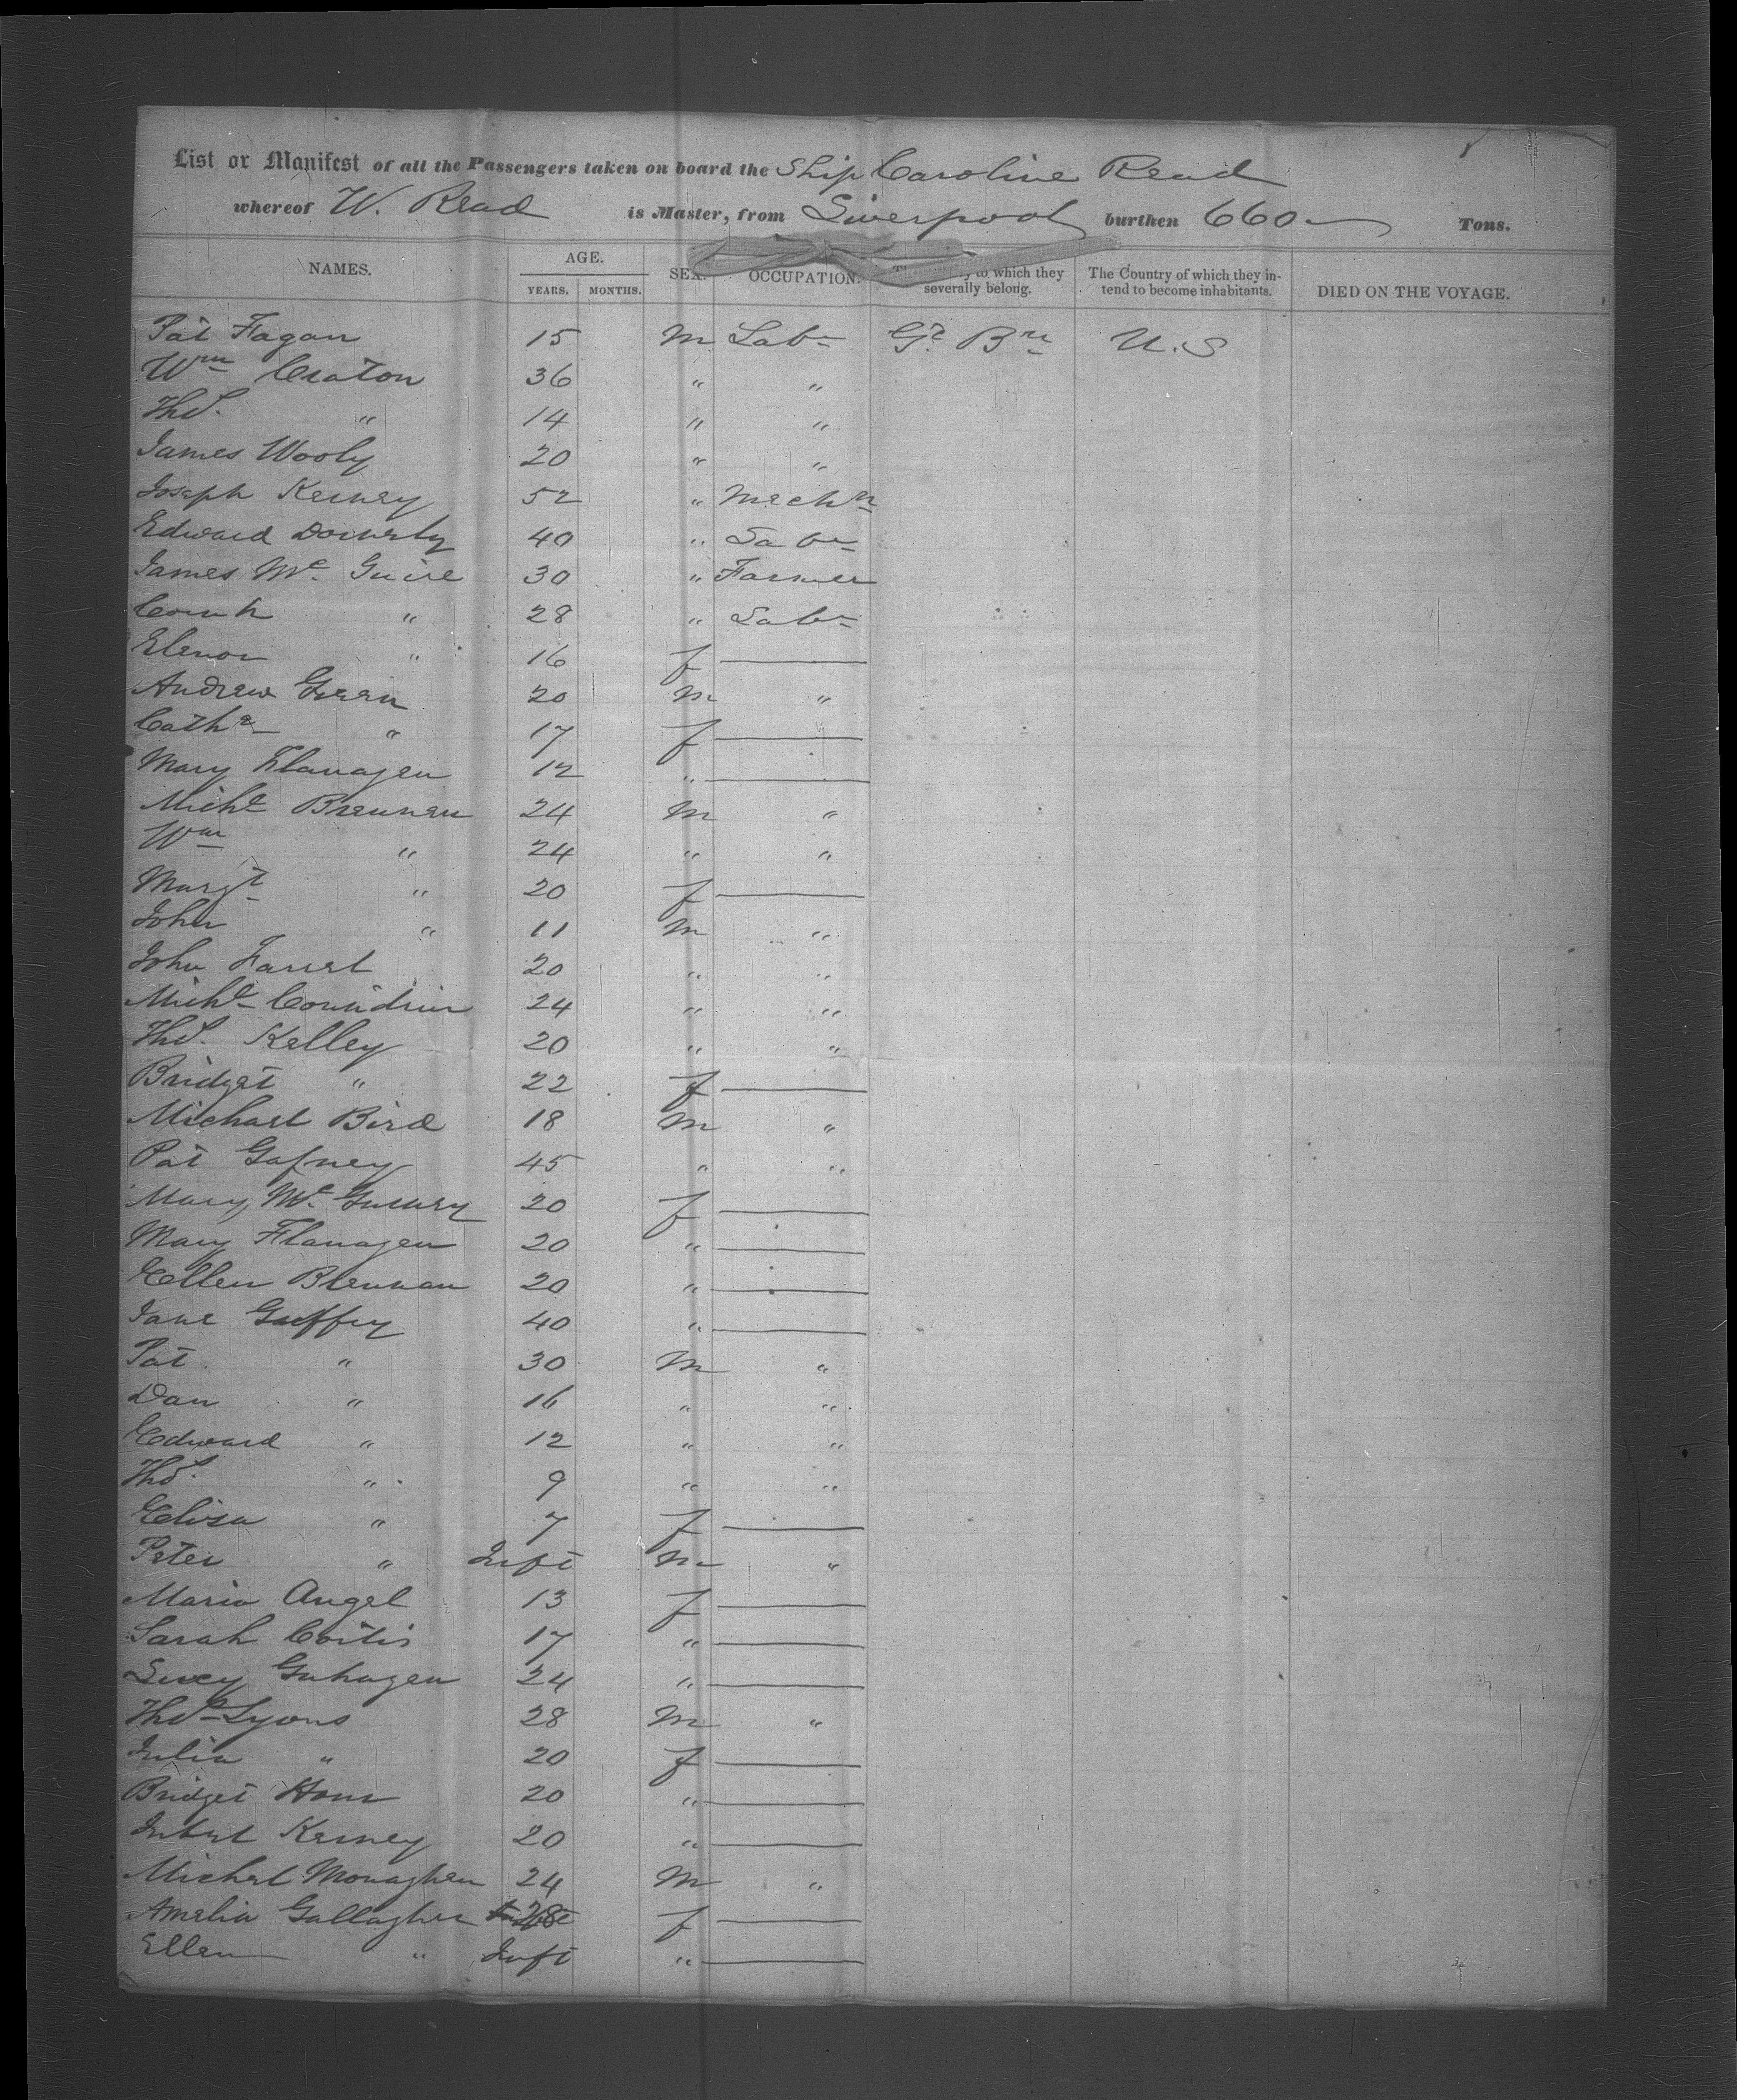 List or Manifest of all the Passengers taken on board the Ship Caroline Read
whereof W. Read is Master, from Liverpool burthen 660 Tons.
NAMES. AGE. YEARS. MONTHS. SEX. OCCUPATION. to which they severally belong. The Country of which they intend to become inhabitants. DIED ON THE VOYAGE.
Pat Fagan 15 m Labr Gt Bn U.S
Wm Craton 36 " "
Thos. " 14 " "
James Wooly 20 " "
Joseph Kerney 52 " Mechn
Edward 40 " Labr
James Mc Guire 30 " Farmer
" 28 " Labr
Elenor " 16 f
Andrew Green 20 m "
Cathe " 17 f
Mary Flanagen 12 "
Michl Brennen 24 m "
Wm " 24 " "
Margt " 20 f
John " 11 m "
John Farrel 20 " "
Michl 24 " "
Thos. Kelley 20 " "
Bridget " 22 f
Michael Bird 18 m "
Pat Gafney 45 " "
Mary Mc 20 f
Mary Flanagen 20 "
Ellen Brennan 20 "
Jane Guffey 40 "
Pat " 30 m "
Dan " 16 " "
Edward " 12 " "
Thos. " 9 " "
Elisa " 7 f
Peter " Inft m "
Maria Angel 13 f
Sarah 17 "
Lucy 24 "
Thos Lyons 28 m "
Julia " 20 f
Bridget 20 "
Kerney 20 "
Michel Monaghen 24 m "
Amelia Gallagher 28 f
Ellen " Inft "